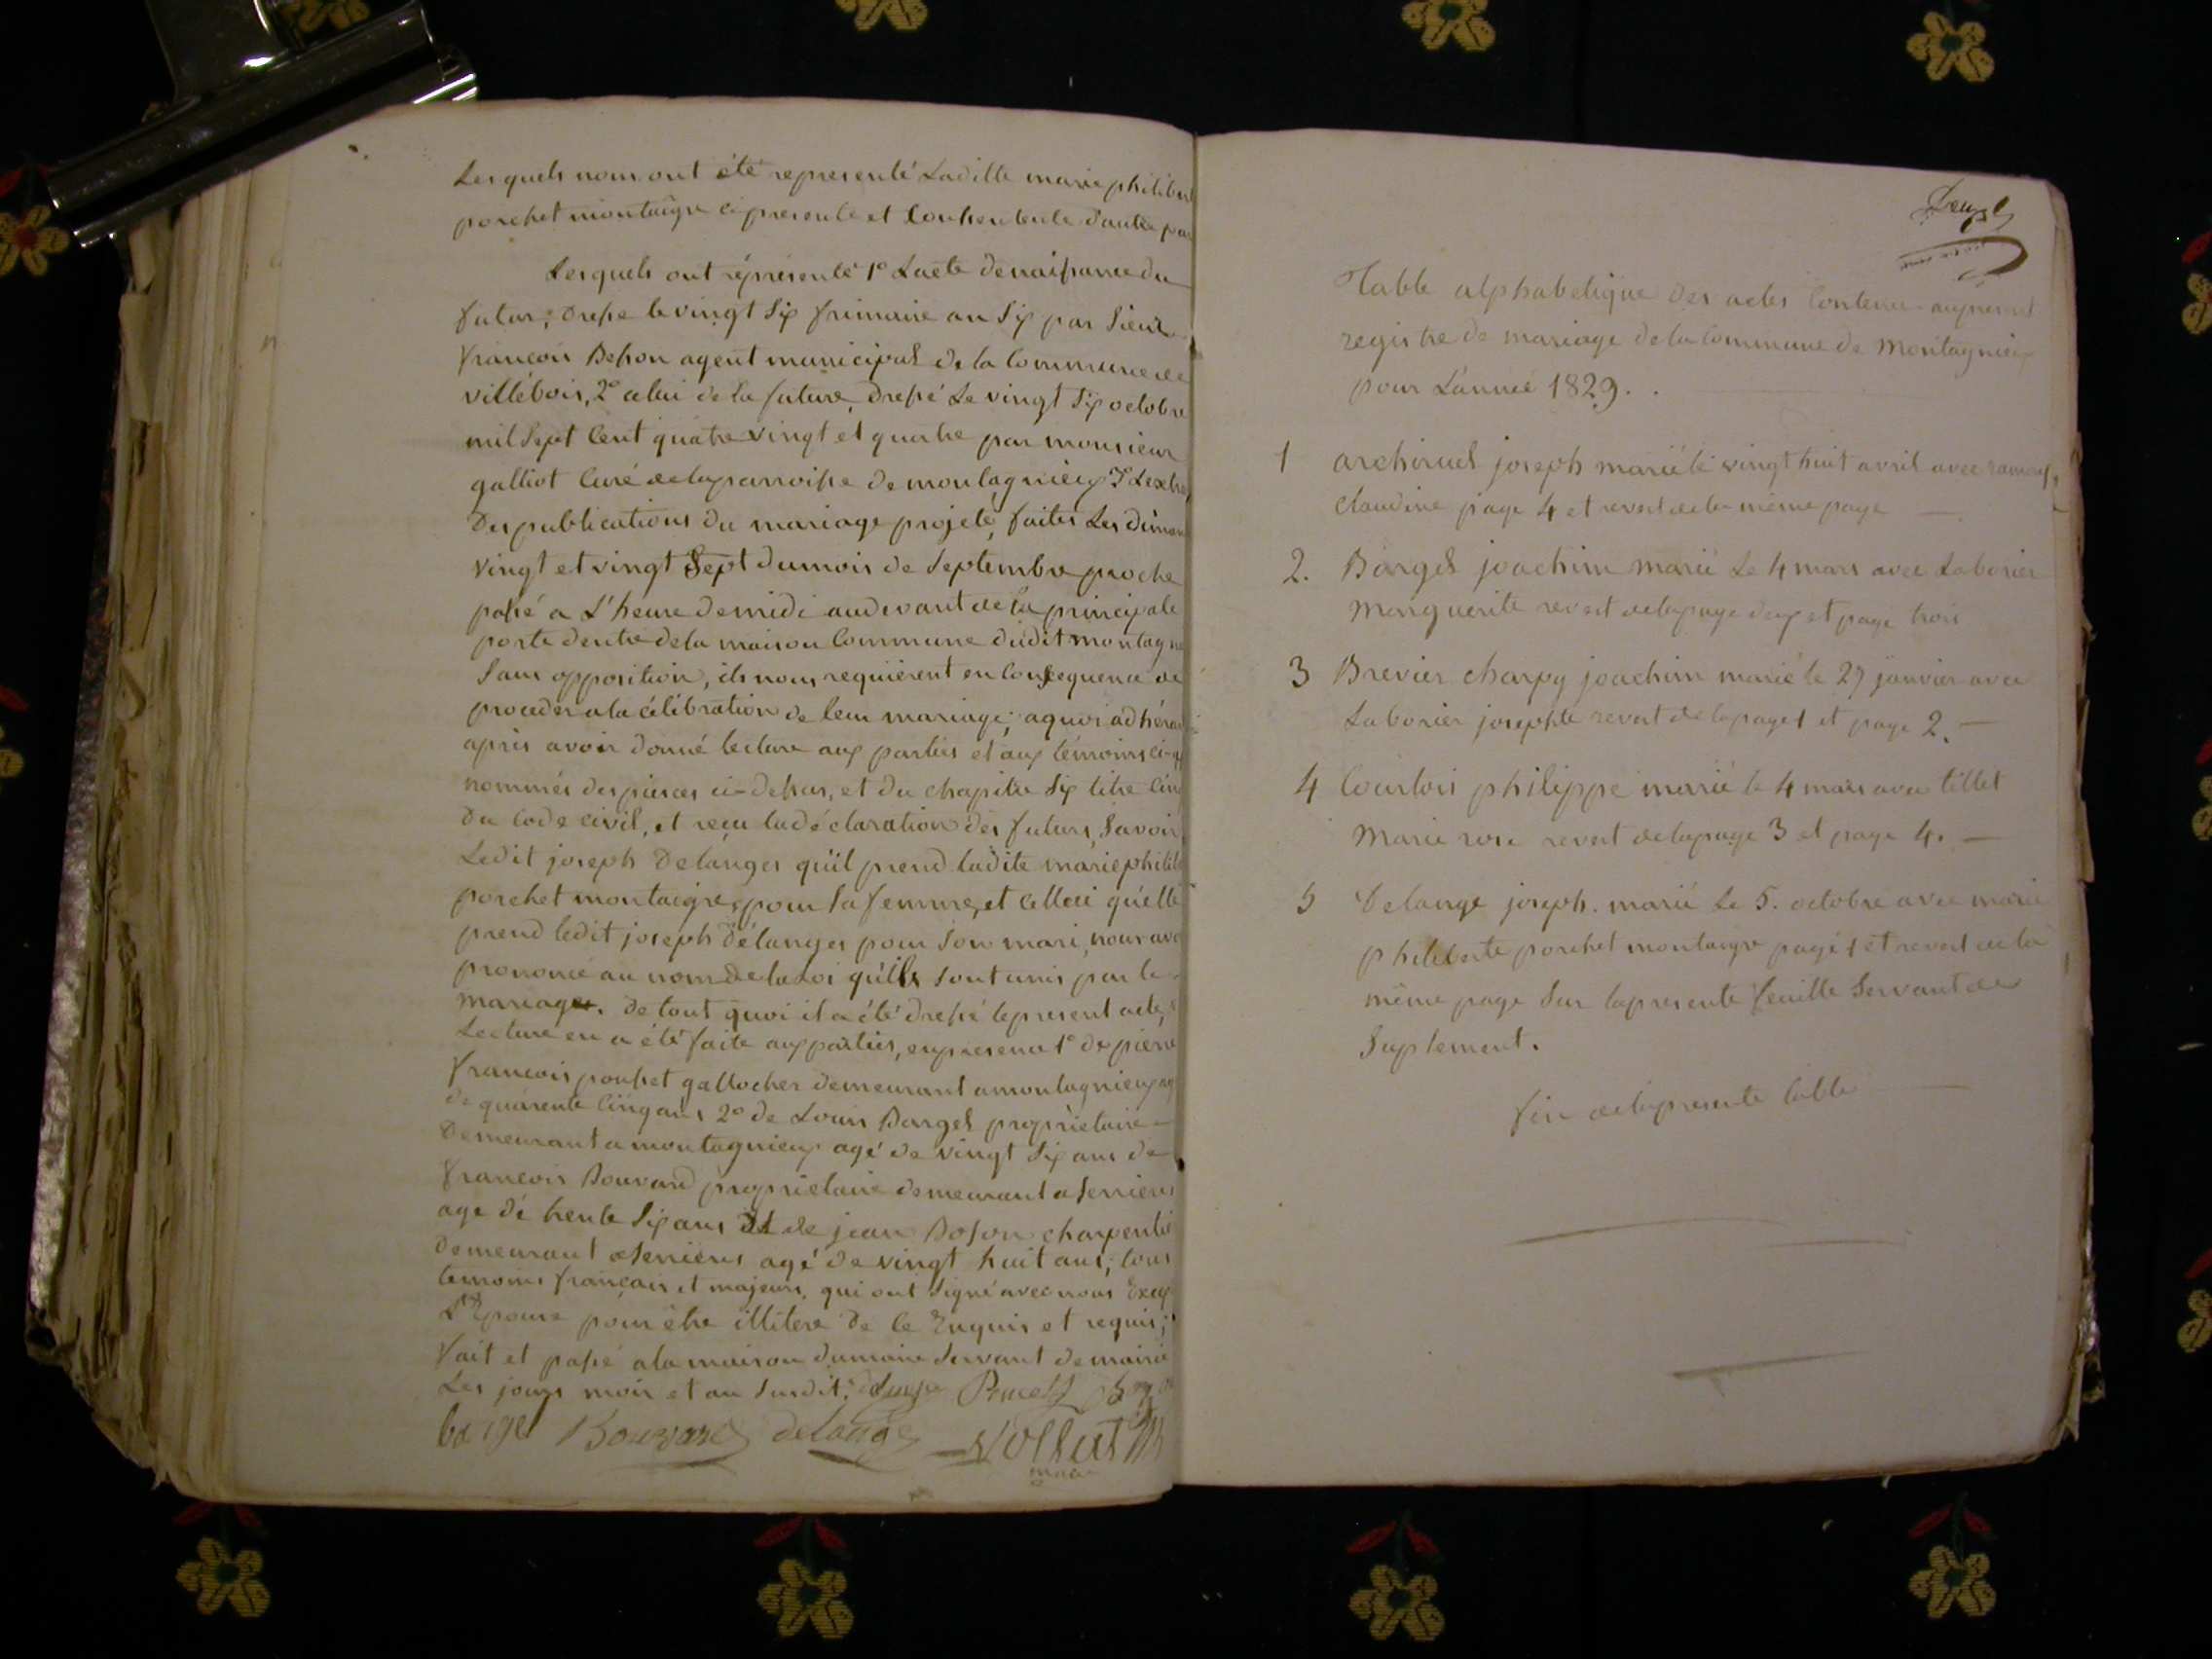 Lesquels nous ont été representé Ladille marie philiber
porchet montaigre ci presente et Conhentente d'autre par
Lesquels ont réprésenté 1° Lacte de naissance du
futur, dressé le vingt six frimaire an six par Sieur
francois Besson agent municipal de la Commune de
villébois, 2° celui de la future, dressé Le vingt six octobre
mil Sept Cent quatre vingt et quatre par monsieur
galliot Curé de la parroisse de montagnieux 3° Lextra
Des publications du mariage projeté, faites Les diman
vingt et vingt Sept du mois de Septembre proche
passé a L'heure de midi au devant de la principale
porte dentre de la maison Commune dudit montagn
Sans opposition, ils nous requièrent en Consequence de
proceder a la célébration de leur mariage; a quoi adhéra
après avoir donné lecture aux parties et aux témoins ci-a
nommés des pieces ci-dessus, et du chapitre Six titre Cin
Du Code civil, et reçu la déclaration des futurs, Savoir
Ledit joseph Delanges qu'il prend ladite marie philib
porchet montaigre, pour Sa femme, et Celleci qu'elle
prend ledit joseph Délanges pour Son mari, nous avo
prononcé au nom de la Loi qu'ils Sont unis par le
mariage. De tout quoi il a été dressé le present acte,
Lecture en a été faite aux parties, en presence 1° de pierre
francois gallocher demeurant a montagnieux ag
de quarente Cinq ans 2° de Louis Bargel propriètaire -
Demeurant a montagnieux agé de vingt Six ans de
francois Bouvard propriétaire demeurant a Serrieres
age dé trente Six ans et de jean Boson charpentie
demeurant a Serrieres agé de vingt huit ans; tous
temoins français et majeurs, qui ont Signé avec nous Excep
L'Epouse pour être illitere de ce Enquis et requis;
fait et passé a la maison du maire Servant de mairie
Les jours mois et an Susdit.
bargel Bouvard delange Vollut
maire
Table alphabetique Des actes Contenu au present
registre de mariage de la Commune de Montagnieux
pour L'année 1829.
1 archirel joseph marié le vingt huit avril avec
Claudine page 4 et revert de la même page
2. Bargel joachim marié Le 4 mars avec Laborier
Marguerite revert de la page deux et page trois
3 Brevier charpy joachim marié le 27 janvier avec
Laborier josephte revert de la page 1 et page 2.
4 Courtois philippe marié le 4 mars avec tillet
Marie rose revert de la page 3 et page 4.
5 Delange joseph. marié Le 5. octobre avec marie
philiberte porchet montaigre page 1 et revert de la
même page Sur la presente feuille Servant de
Suplement.
fin de la presente table